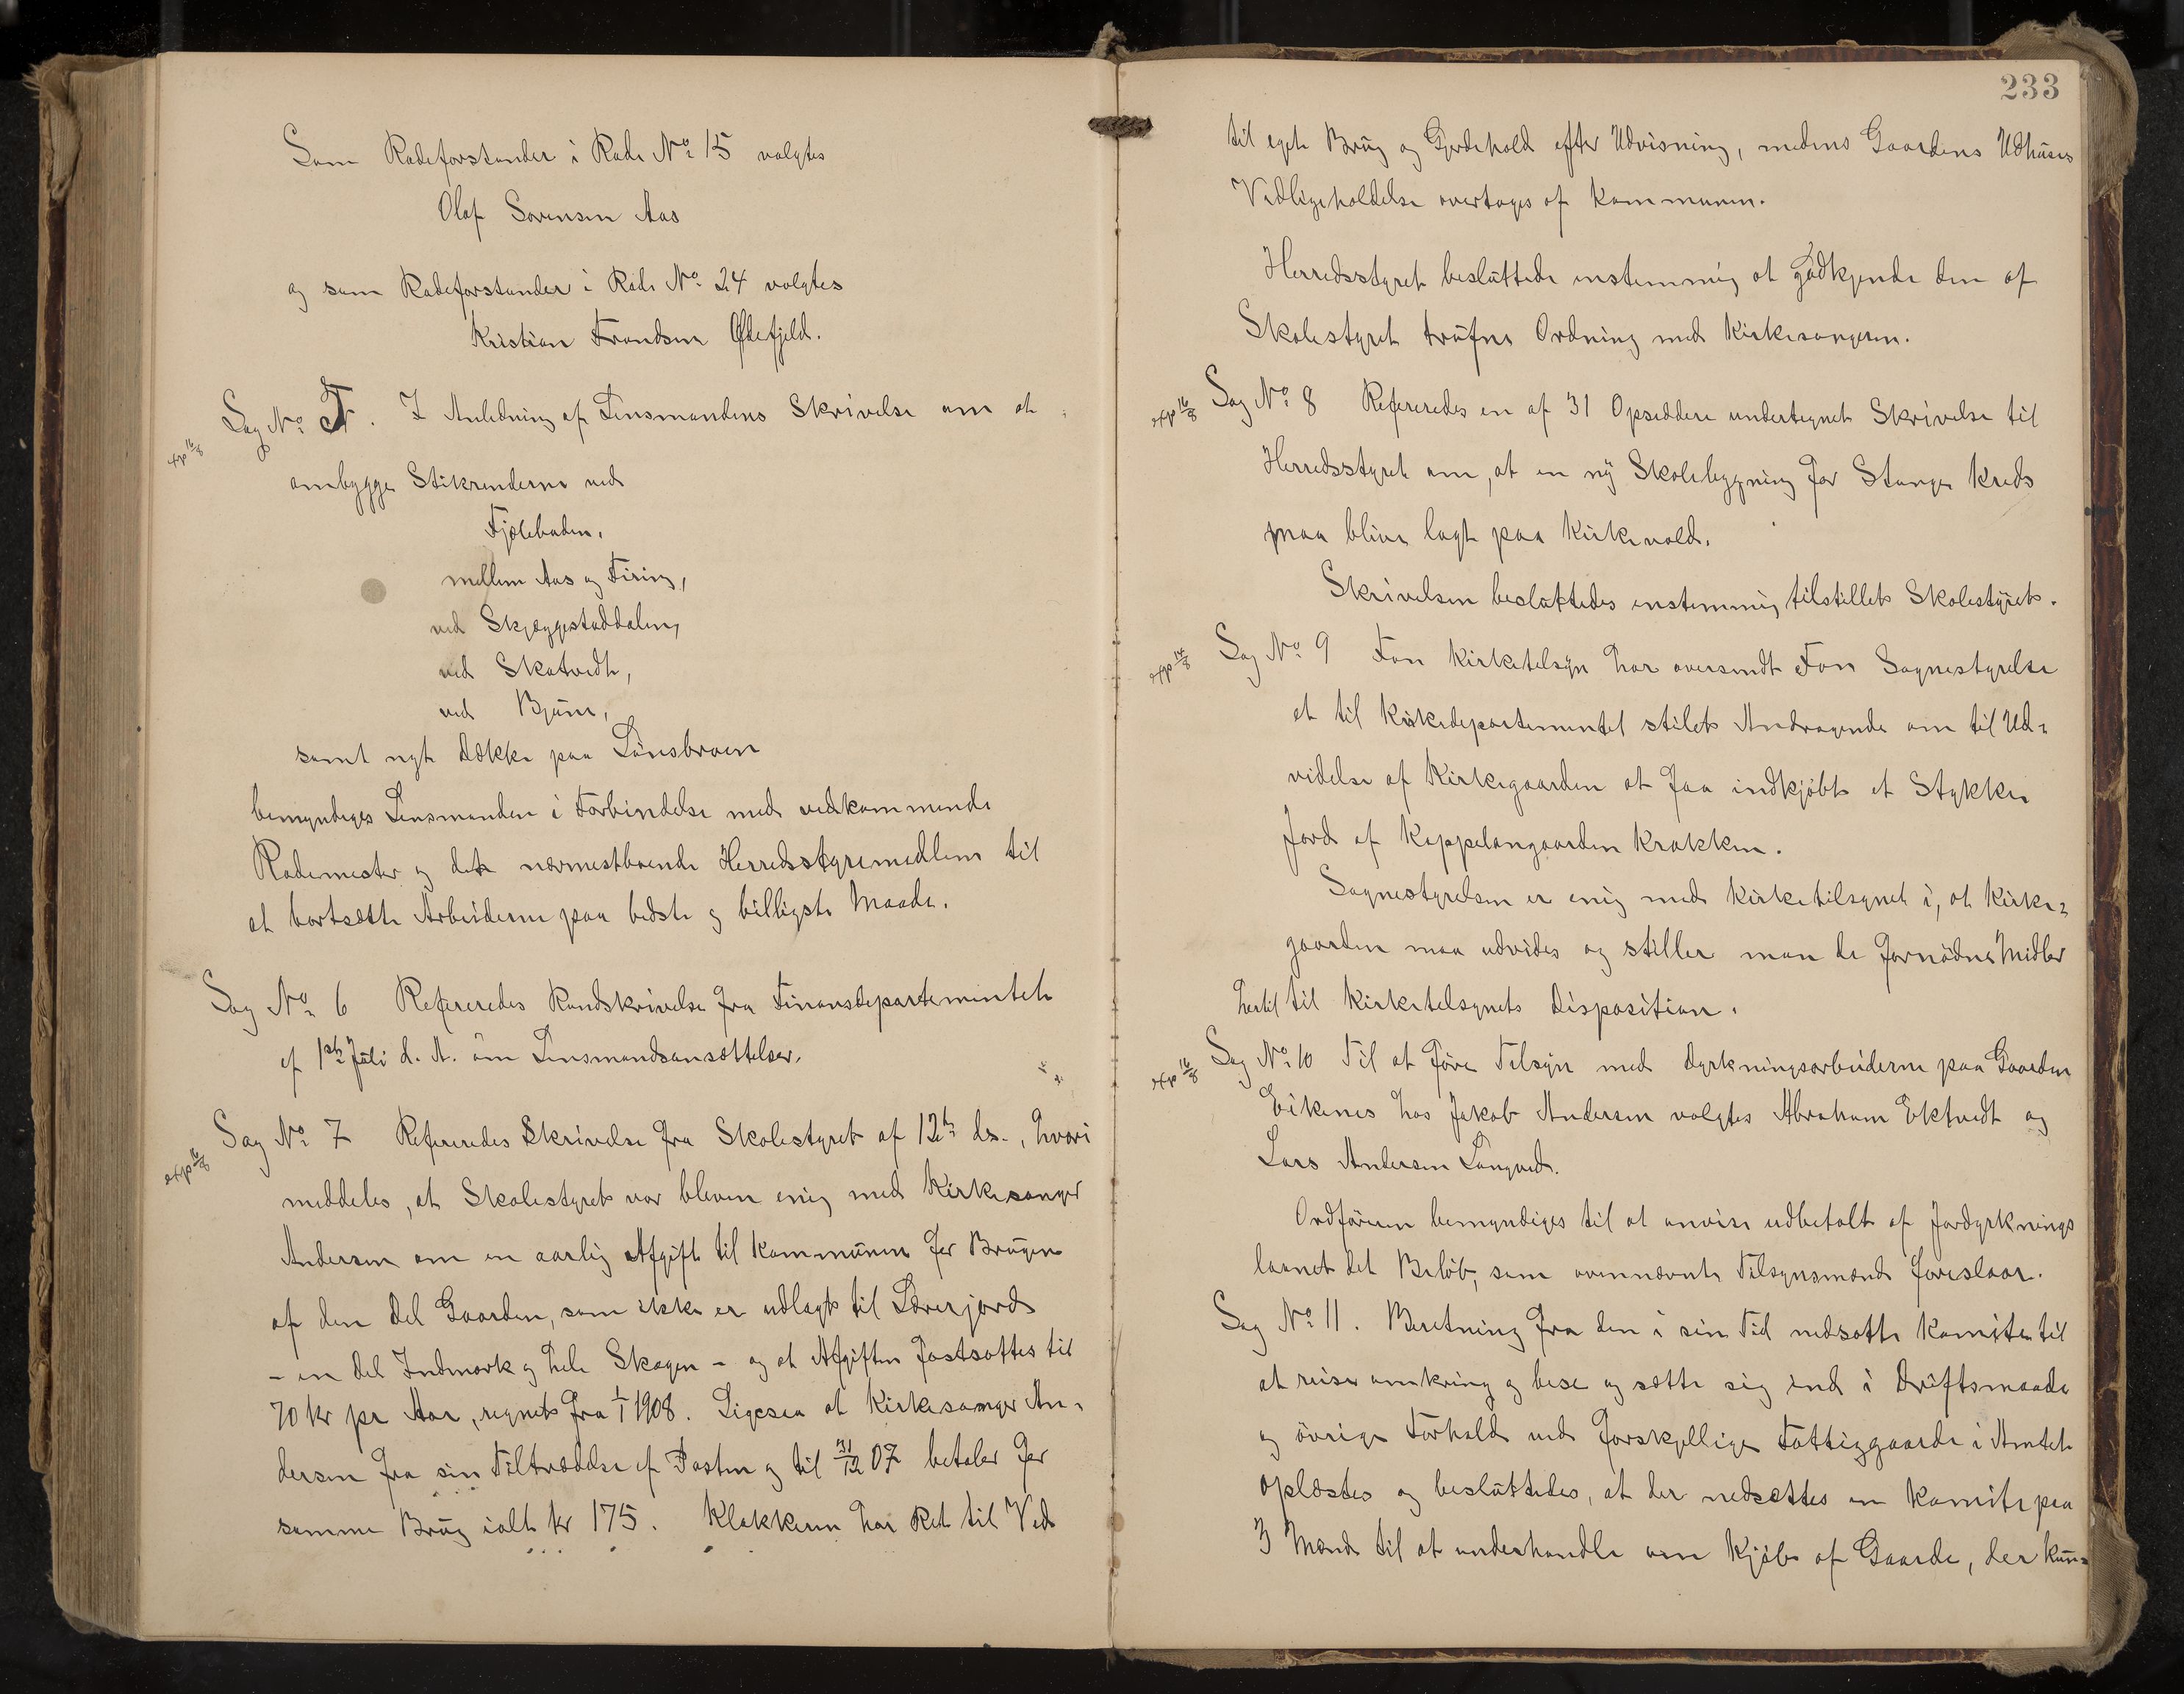 Som Rodeforstander i Rode No 15 valgtes
Olaf Sørensen Aas
og som Rodeforstander i Rode No 24 valgtes
Kristian Frandsen Ødefjeld.
Sag No 5. I Anledning af Lensmandens Skrivelse om at
exp 16/8
ombygge Stikrenderne ved
Fjæleboden,
mellem Aas og Firing,
ved Skjeggestaddalen,
ved Skatvedt,
ved Bjune,
samt nyt Dække paa Lånsbroen
bemyndiges Lensmanden i Forbindelse med vedkommende
Rodemester og det nærmestboende Herredsstyremedlem til
at bortsætte Arbeiderne paa bedste og billigste Maade.
Sag No 6 Refereredes Rundskrivelse fra Finansdepartementet
af 1ste Juli d. A. om Lensmandsansættelser.
Sag No 7 Refereredes Skrivelse fra Skolestyret af 12te ds., hvori
exp 16/8
meddeles, at Skolestyret var bleven enig med Kirkesanger
Andersen om en aarlig Afgift til Kommunen for Brugen
af den Del Gaarden, som ikke er udlagt til Lærerjord
– en del Indmark og hele Skogen – og at Afgiften fastsattes til
70 kr pr Aar, regnet fra 1/1 1908. Ligesaa at Kirkesanger An-
dersen fra sin Tiltrædelse af Posten og til 31/12 07 betaler for
samme Brug ialt kr 175. Klokkeren har Ret til Ved
233
til eget Brug og Gjerdehold efter Udvisning, medens Gaardens Udhuses
Vedligeholdelse overtages af Kommunen.
Herredsstyret besluttede enstemmig at godkjende den af
Skolestyret trufne Ordning med Kirkesangeren.
Sag No 8 Refereredes en af 31 Opsiddere undertegnet Skrivelse til
exp 16/8
Herredsstyret om, at en ny Skolebygning for Stange Kreds
maa blive lagt paa Kirkevold.
Skrivelsen besluttedes enstemmig tilstillet Skolestyret.
Sag No 9 Fon Kirketilsyn har oversendt Fon Sognestyrelse
exp 14/8
et til Kirkedepartementet stilet Andragende om til Ud-
videlse af Kirkegaarden at faa indkjøbt et Stykke
Jord af Kappelangaarden Krakken.
Sognestyrelsen er enig med Kirketilsynet i, at Kirke-
gaarden maa udvides og stiller man de fornødne Midler
hertil til Kirketilsynets Disposition.
Sag No 10 Til at føre Tilsyn med Dyrkningsarbeiderne paa Gaarden
exp 16/8
Eikenes hos Jakob Andersen valgtes Abraham Ektvedt og
Lars Andersen Langved.
Ordføreren bemyndiges til at anvise udbetalt af Jorddyrknings
laanet det Beløb, som ovennævnte Tilsynsmænd foreslaar.
Sag No 11. Beretning fra den i sin Tid nedsatte Komite til
at reise omkring og bese og sætte sig ind i Driftsmaade
og øvrige Forhold ved forskjellige Fattiggaarde i Amtet
oplæstes og besluttedes, at der nedsættes en Komite paa
3 Mænd til at underhandle om Kjøb af Gaarde, der kun-